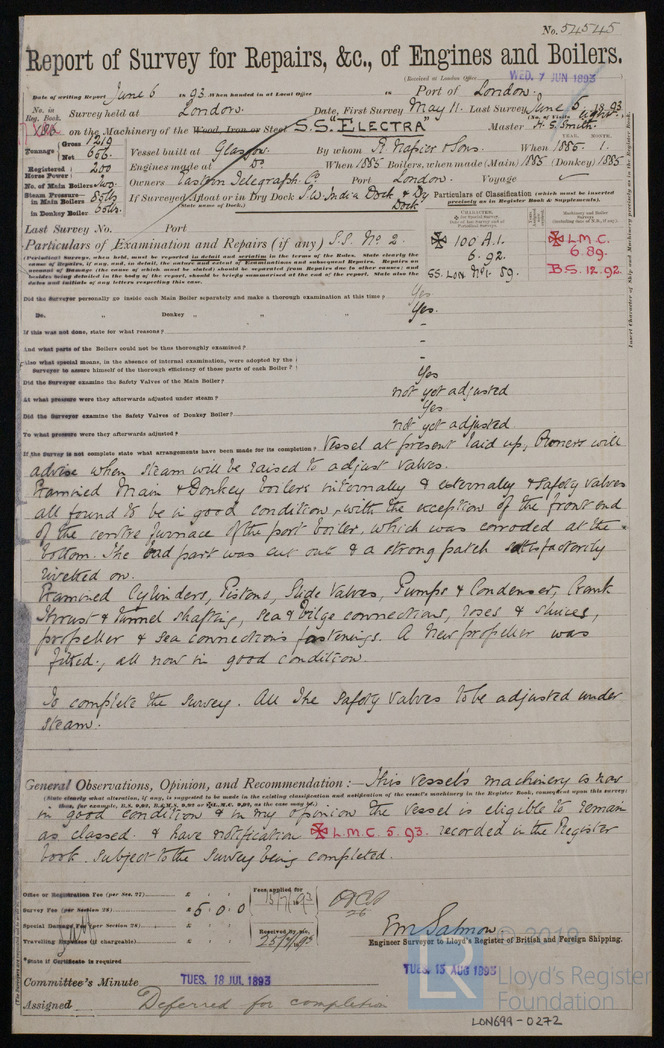 No. 54545
Report of Survey for Repairs, &c., of Engines and Boilers.
(Received at London Office WED. 7 JUN 1893
Date of writing Report June 6 18 93 When handed in at Local Office 18 Port of London.
No. in Reg. Book. Survey held at London. Date, First Survey May 11. Last Survey June 6. 18 93
(No. of Visits
on the Machinery of the Wood, Iron or Steel S.S. "ELECTRA" Master H. S. Smith.
Tonnage Gross 1219 Net 656. Vessel built at Glasgow By whom R. Napier & Sons. When 1885. 1.
YEAR. MONTH.
Registered Horse Power 200 Engines made at Do. When 1885 Boilers, when made (Main) 1885 (Donkey) 1885
No. of Main Boilers two. Owners Eastern Telegraph Co Port London. Voyage
Steam Pressure in Main Boilers 85lbs in Donkey Boiler If Surveyed Afloat or in Dry Dock S.W. India Dock & Dy Dock
(State name of Dock.)
Particulars of Classification (which must be inserted precisely as in Register Book & Supplements).
Last Survey No. Port
Particulars of Examination and Repairs (if any) S.S. No 2.
✠ 100 A.1.
6.92.
SS. LON. No1. 89.
✠ L.M.C.
6.89.
B.S. 12.92.
(Periodical Surveys, when held, must be reported in detail and seriatim in the terms of the Rules. State clearly the
Insert Character of Ship and Machinery precisely as in the Register Book.
Did the Surveyor personally go inside each Main Boiler separately and make a thorough examination at this time? Yes.
Do. „ Donkey „ „ „ Yes.
If this was not done, state for what reasons? –
And what parts of the Boilers could not be thus thoroughly examined? –
Also what special means, in the absence of internal examination, were adopted by the Surveyor to assure himself of the thorough efficiency of those parts of each Boiler? –
Did the Surveyor examine the Safety Valves of the Main Boiler? Yes
At what pressure were they afterwards adjusted under steam? not yet adjusted
Did the Surveyor examine the Safety Valves of Donkey Boiler? Yes.
To what pressure were they afterwards adjusted? not yet adjusted
If the Survey is not complete state what arrangements have been made for its completion? Vessel at present laid up, Owners will
advise when steam will be raised to adjust valves.
Examined Main & Donkey boilers internally & externally & Safety Valves
all found to be in good condition, with the exception of the front end
of the centre furnace of the port boiler, which was corroded at the
bottom. The bad part was cut out & a strong patch satisfactorily
rivetted on.
Examined Cylinders, Pistons, Slide Valves, Pumps & Condenser, Crank
Thrust & Tunnel shafting, sea & bilge connections, roses & sluices,
propeller & sea connections fastenings. A New propeller was
fitted., all now in good condition.
To complete the survey. All the Safety Valves to be adjusted under
steam.
General Observations, Opinion, and Recommendation:— This vessel's machinery is now
(State clearly what alteration, if any, is suggested to be made in the existing classification and notification of the vessel's machinery in the Register Book, consequent upon this survey;
thus, for example, B.S. 9,92, B.&M.S. 9,92 or ✠L.M.C. 9,92, as the case may be.)
in good condition & in my opinion the vessel is eligible to remain
as classed. & have notification ✠ L.M.C. 5.93. recorded in the Register
book. subject to the survey being completed.
Office or Registration Fee (per Sec. 27) £ : : Fees applied for 15/7/1893
Survey Fee (per Section 28) £ 5 . 0 . 0
Special Damage Fee (per Section 28) £ : : Received by me,
Travelling Expenses (if chargeable) £ : : 25/7/1893
*State if Certificate is required
Em Salmon
Engineer Surveyor to Lloyd's Register of British and Foreign Shipping.
Committee's Minute TUES. 18 JUL 1893 TUES. 15 AUG 1893
Assigned Deferred for completion
© 2019
LR
Lloyd's Register
Foundation
LON699-0272